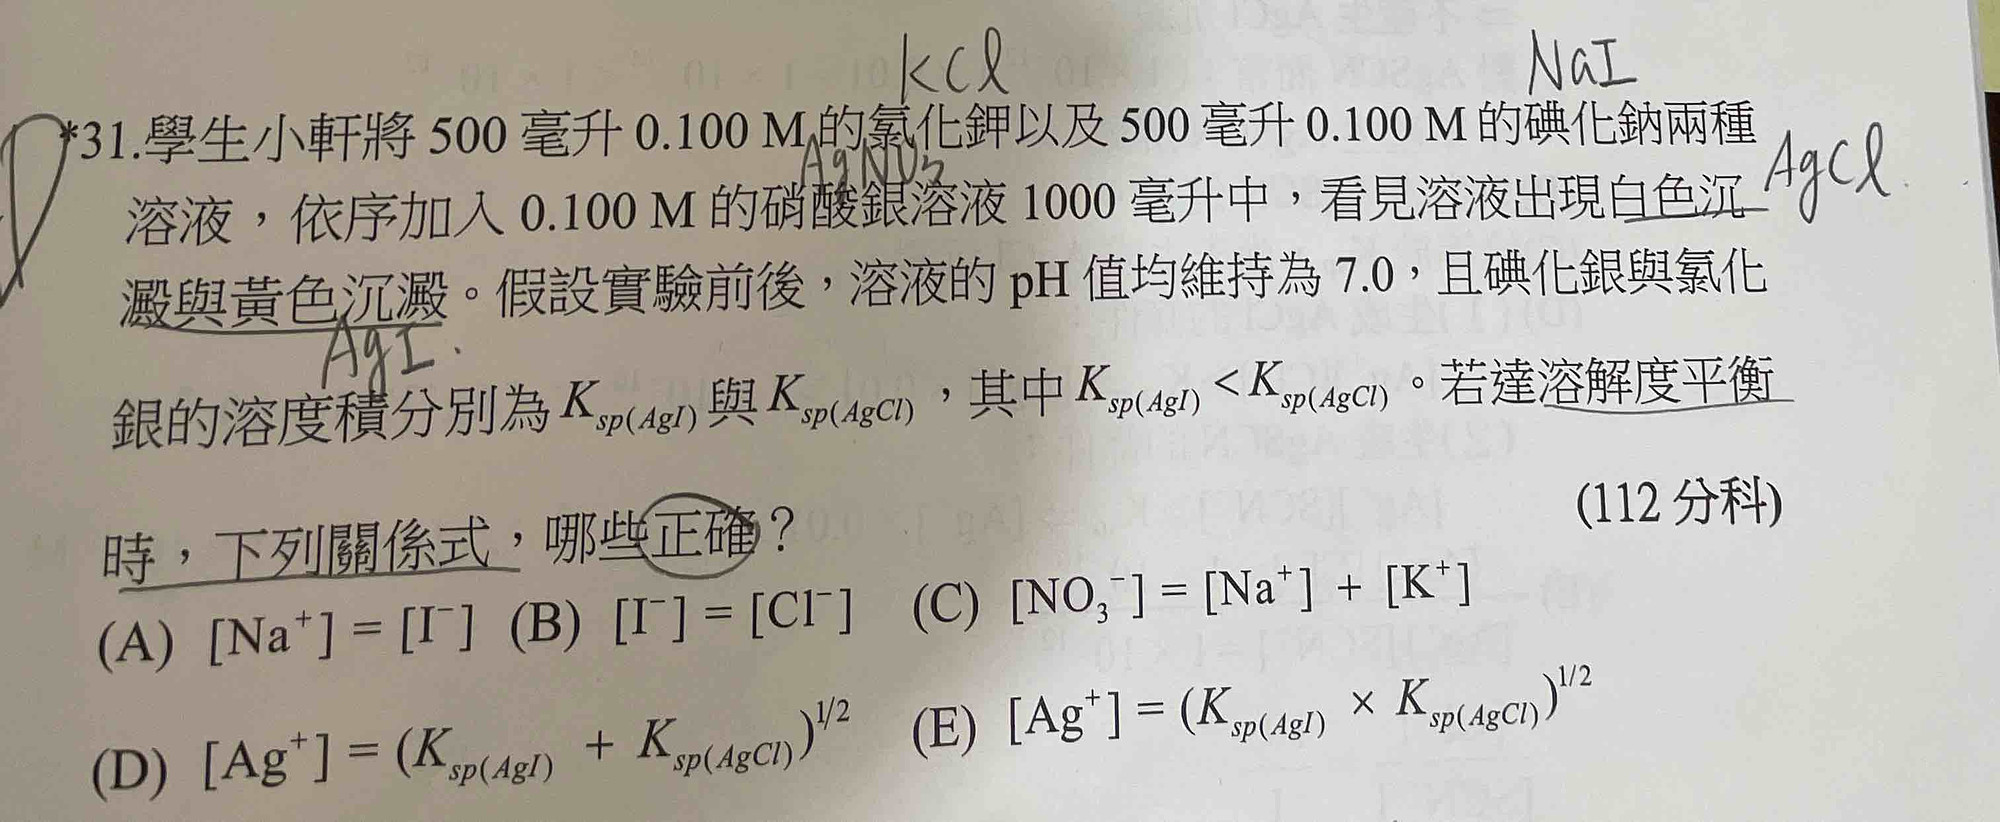 KCl
NaI
*31.學生小軒將 500 毫升 0.100 M 的氯化鉀以及 500 毫升 0.100 M 的碘化鈉兩種
AgNO₃
AgCl
溶液，依序加入 0.100 M 的硝酸銀溶液 1000 毫升中，看見溶液出現白色沉
澱與黃色沉澱。假設實驗前後，溶液的 pH 值均維持為 7.0，且碘化銀與氯化
AgI.
銀的溶度積分別為 Ksp(AgI) 與 Ksp(AgCl)，其中 Ksp(AgI) < Ksp(AgCl)。若達溶解度平衡
時，下列關係式，哪些正確？ (112 分科)
(A) [Na⁺] = [I⁻] (B) [I⁻] = [Cl⁻] (C) [NO₃⁻] = [Na⁺] + [K⁺]
(D) [Ag⁺] = (Ksp(AgI) + Ksp(AgCl))^1/2 (E) [Ag⁺] = (Ksp(AgI) × Ksp(AgCl))^1/2